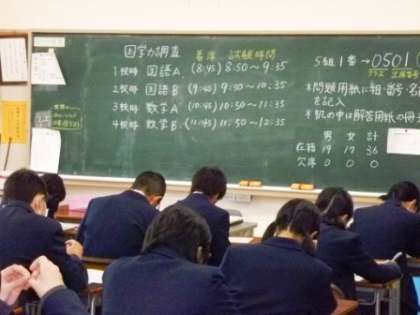 国学力調査 着席 試験時間
1校時 国語A (8:45) 8:50~9:35
2校時 国語B (9:45) 9:50~10:35
3校時 数学A (10:45) 10:50~11:35
4校時 数学B (11:45) 11:50~12:35
5組1番→0501
クラス
*問題用紙に組・番号・名
を記入
*机の中は解答用紙の冊
男 女 計
在籍 19 17 36
欠席 0 0 0